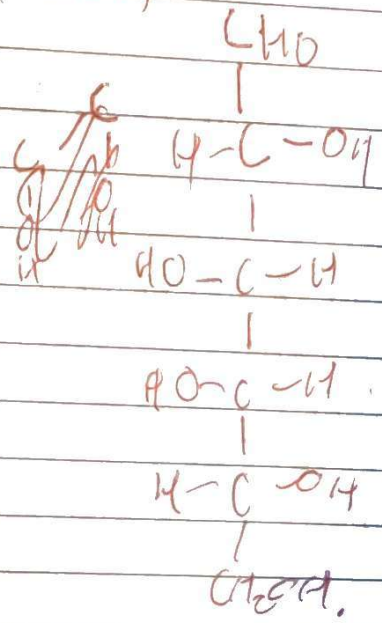 CHO
H-C-OH
HO-C-H
HO-C-H
H-C-OH
CH₂OH.